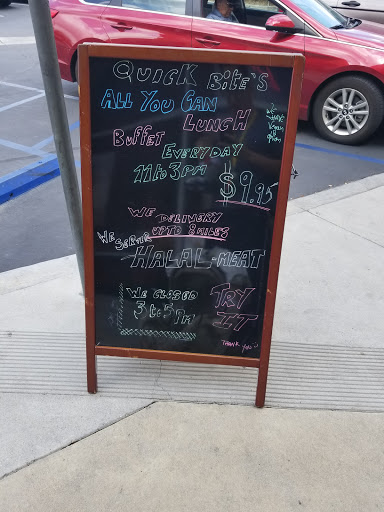 QUICK BiTE'S
ALL YOU CAN
LUNCH
BUFFET
EVERYDAY
11 to 3PM
$9.95
WE DELIVERY
UPTO 8 MILES
WE SERVE
HALAL-MEAT
WE CLOSED
3 to 5 PM
TRY
IT
THANK YOU